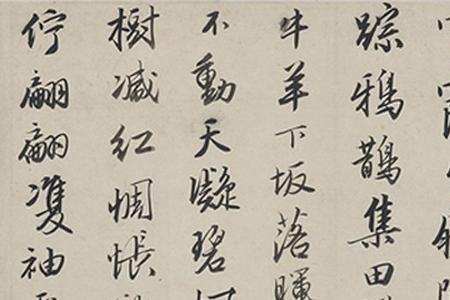 踪鴉鵲集田
牛羊下坂落暉
不動天凝碧
樹減红惆悵
佇翩翩雙袖